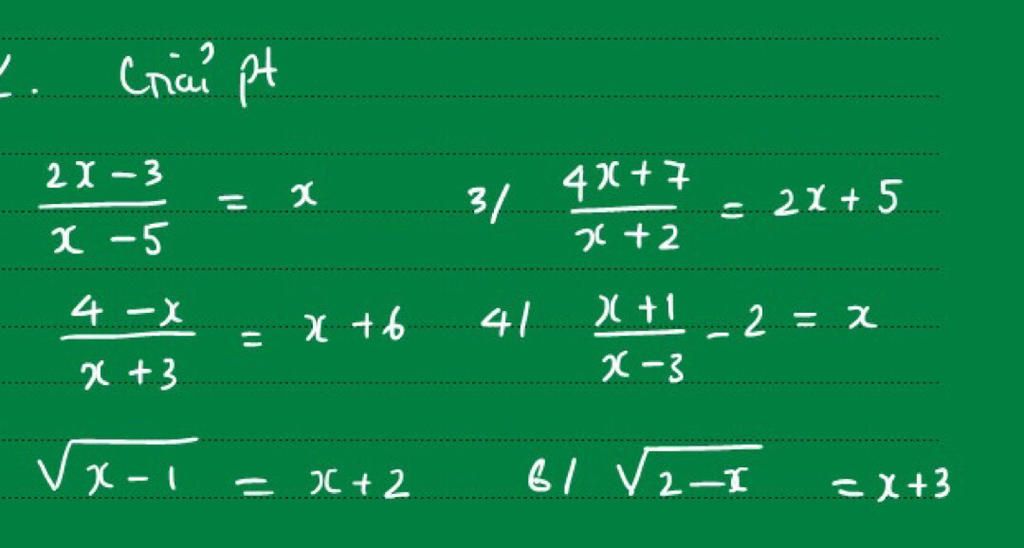 . Giải pt
(2x - 3)/(x - 5) = x 3/ (4x + 7)/(x + 2) = 2x + 5
(4 - x)/(x + 3) = x + 6 4/ (x + 1)/(x - 3) - 2 = x
√(x - 1) = x + 2 6/ √(2 - x) = x + 3